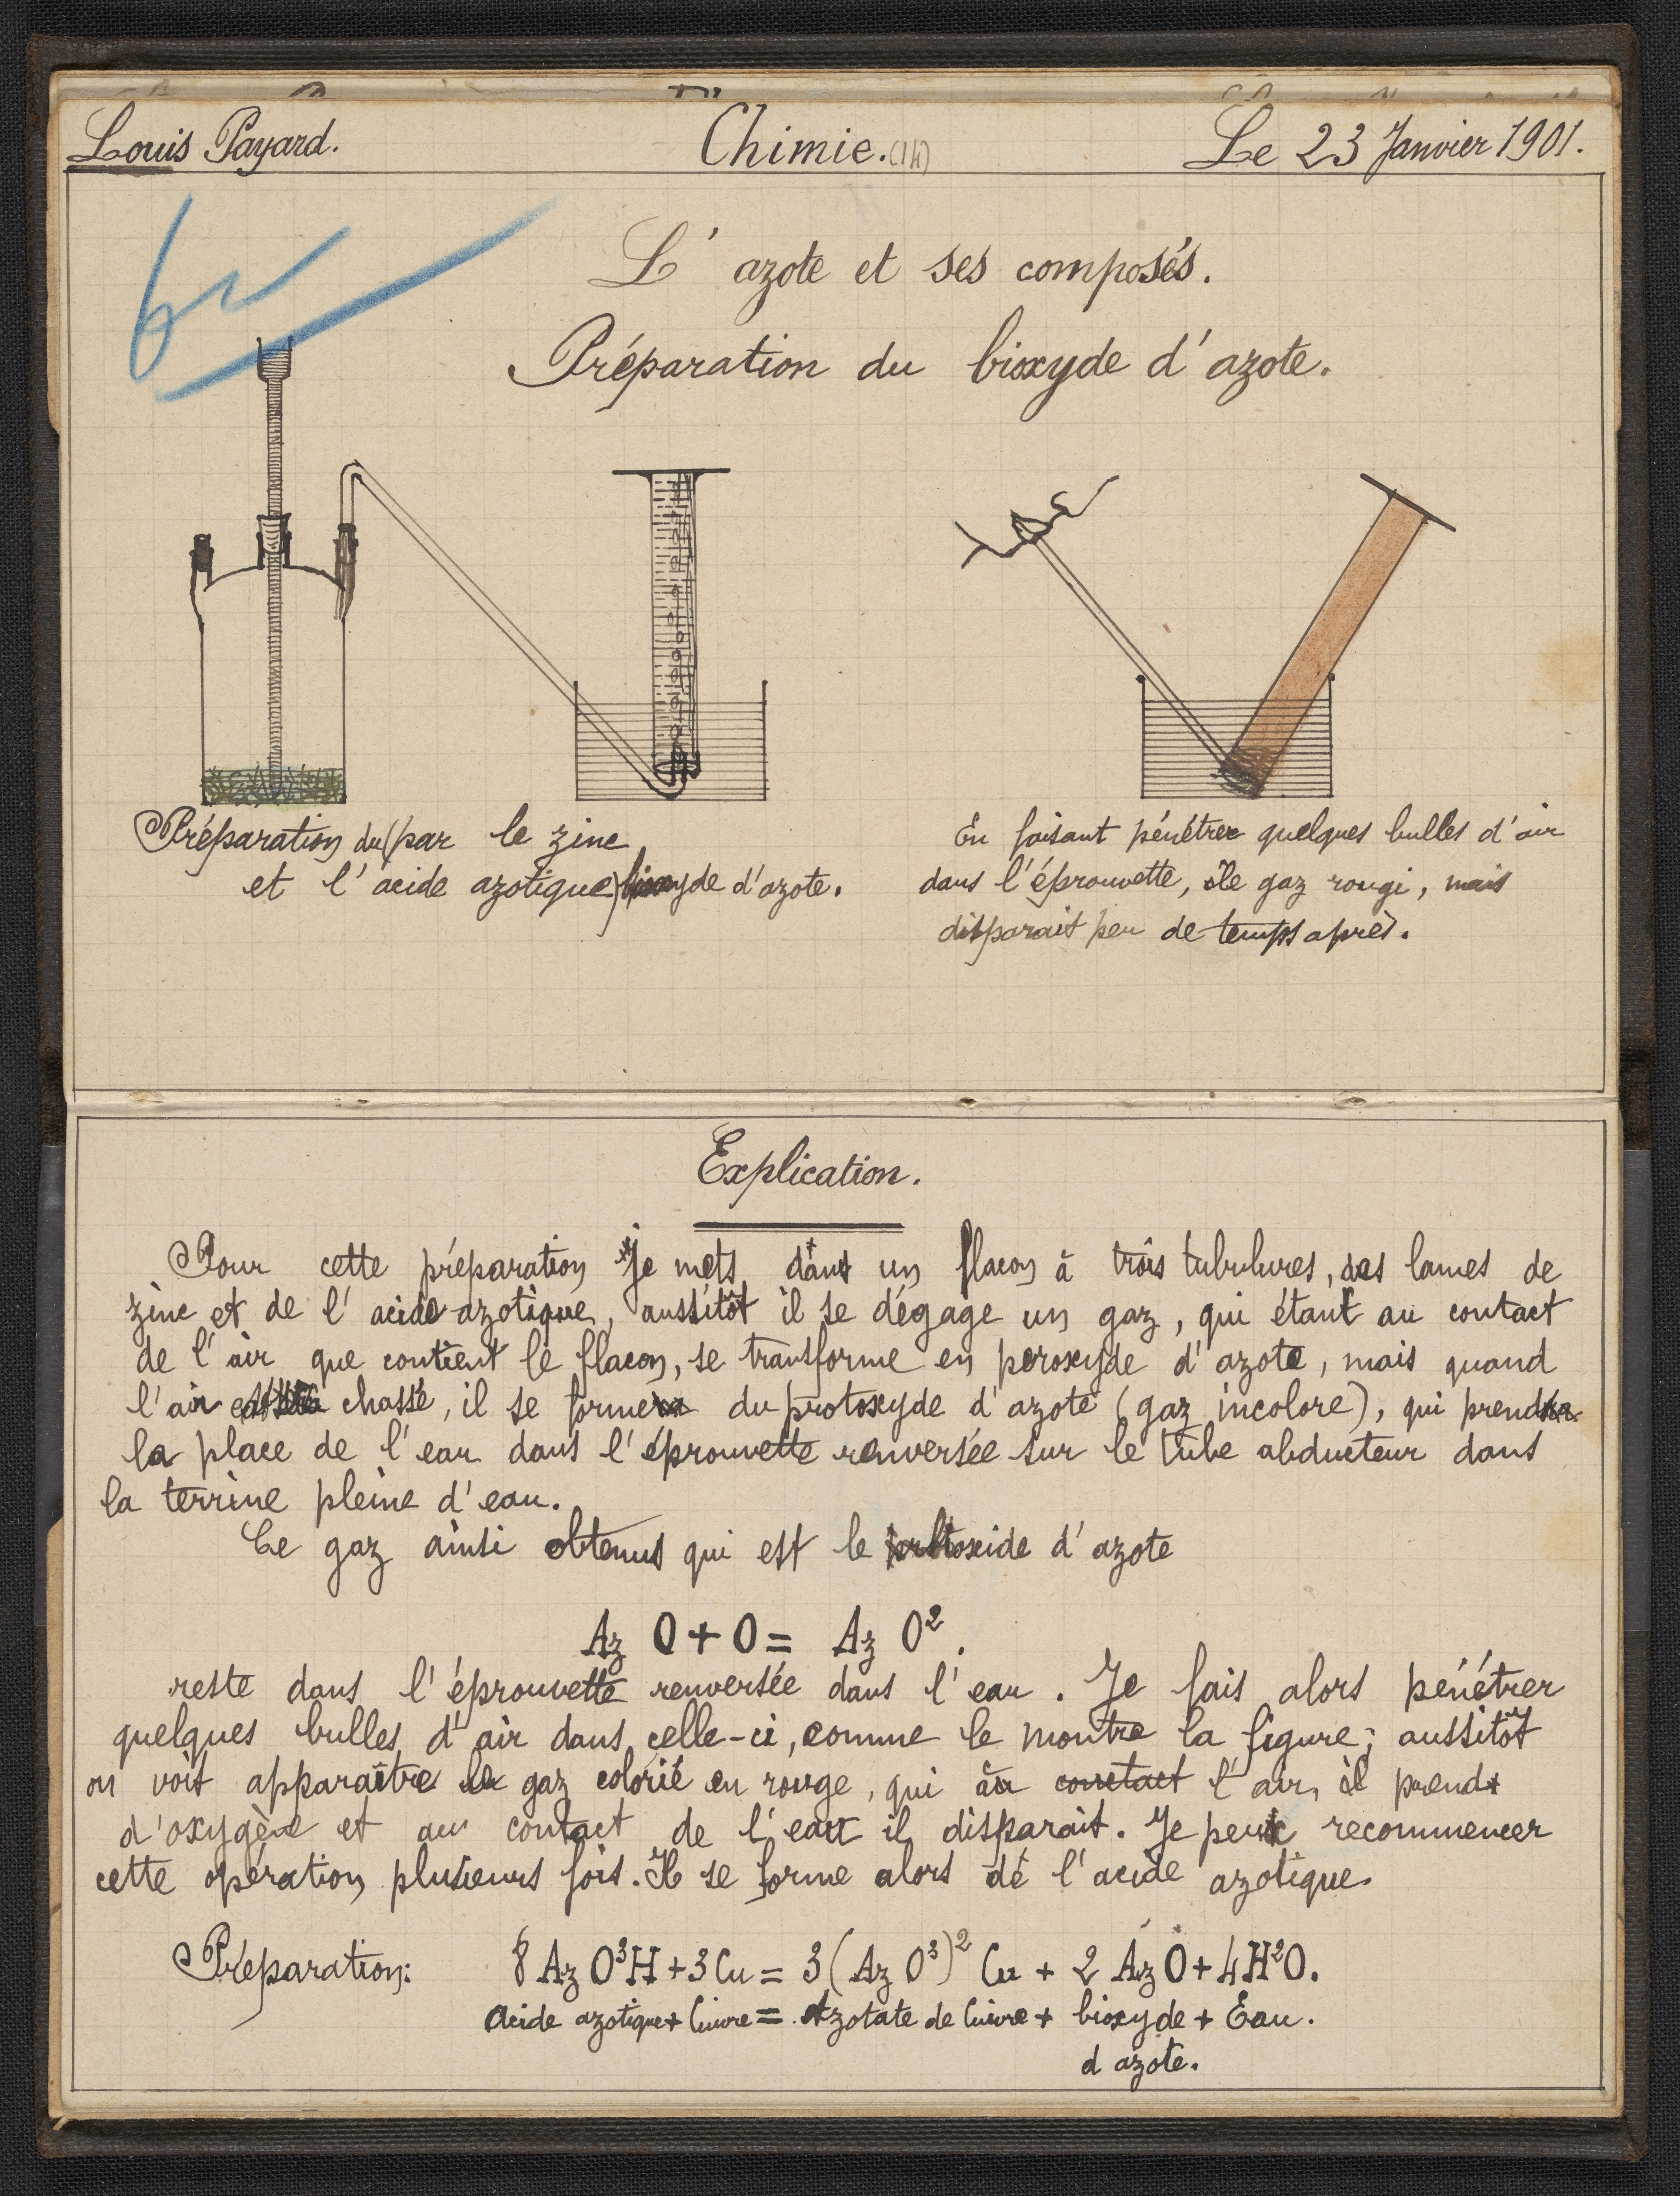 Louis Payard.
Chimie. (14)
Le 23 Janvier 1901.
L' azote et ses composés.
Préparation du bioxyde d' azote.
Préparation du (par le zinc
et l' acide azotique) bioxyde d'azote.
En faisant pénétrer quelques bulles d'air
dans l'éprouvette, le gaz rougi, mais
disparait peu de temps après.
Explication.
Pour cette préparation Je mets dans un flacon à trois tubulures, des lames de
zinc et de l' acide azotique, aussitôt il se dégage un gaz, qui étant au contact
de l'air que contient le flacon, se transforme en peroxyde d' azote, mais quand
l'air chassé, il se forme du protoxyde d' azote (gaz incolore), qui prend
la place de l' eau dans l' éprouvette renversée sur le tube abducteur dans
la terrine pleine d' eau.
Ce gaz ainsi obtenus qui est le d' azote
Az O + O = Az O².
reste dans l' éprouvette renversée dans l' eau. Je fais alors pénétrer
quelques bulles d' air dans celle-ci, comme le montre la figure; aussitôt
on voit apparaître le gaz colorié en rouge, qui au contact l' air, il prend
d'oxygène et au contact de l' eau il disparait. Je peux recommencer
cette opération plusieurs fois. Il se forme alors de l' acide azotique.
Préparation: 8 Az O³H + 3 Cu = 3 (Az O³)² Cu + 2 Az O + 4 H²O.
Acide azotique + Cuivre = Azotate de Cuivre + bioxyde + Eau.
d azote.